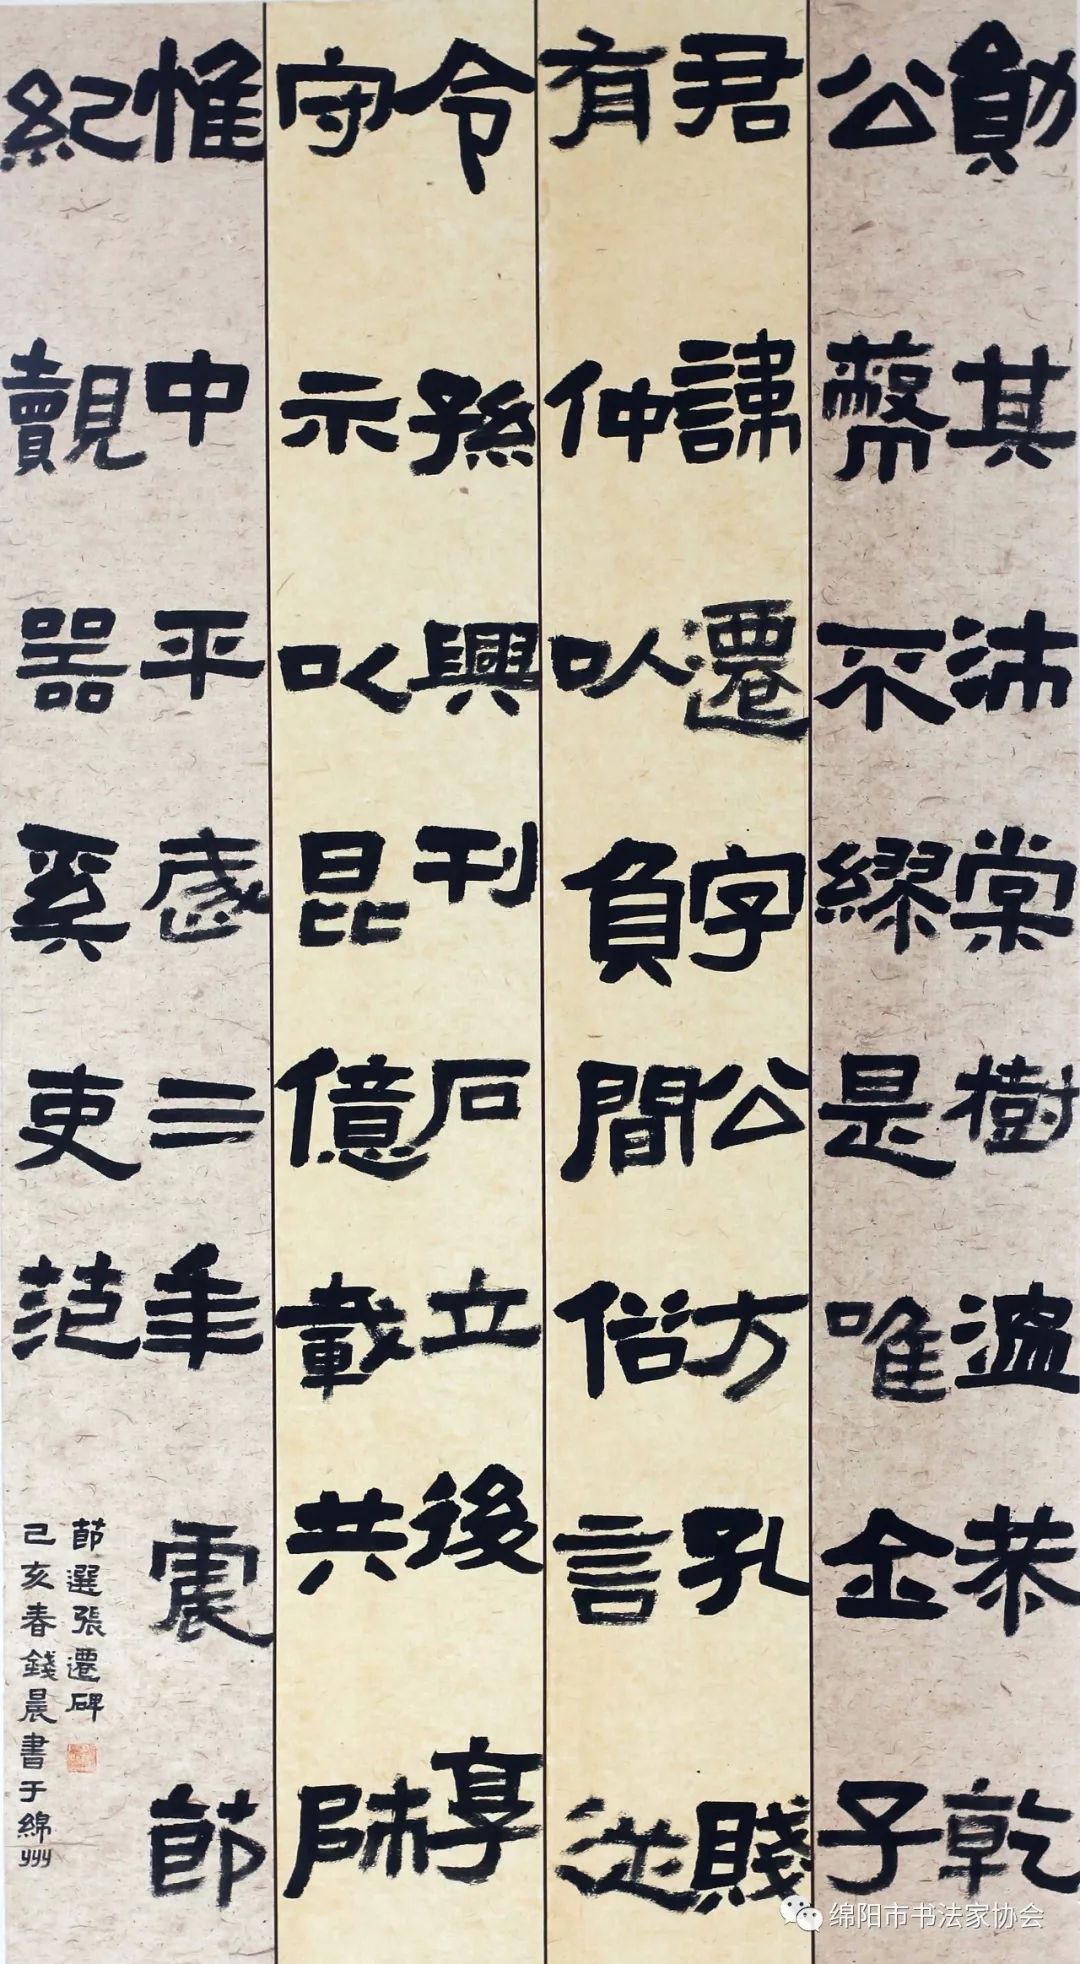 勛其沛棠樹温恭乾
公蔽不繆是唯金子
君諱遷字公方孔賤
有仲以負間俗言從
令孫興刊石立後享
守示以昆億載共師
惟中平感三年震節
紀覿器奚吏范
節選張遷碑
己亥春錢晨書于綿州
绵阳市书法家协会